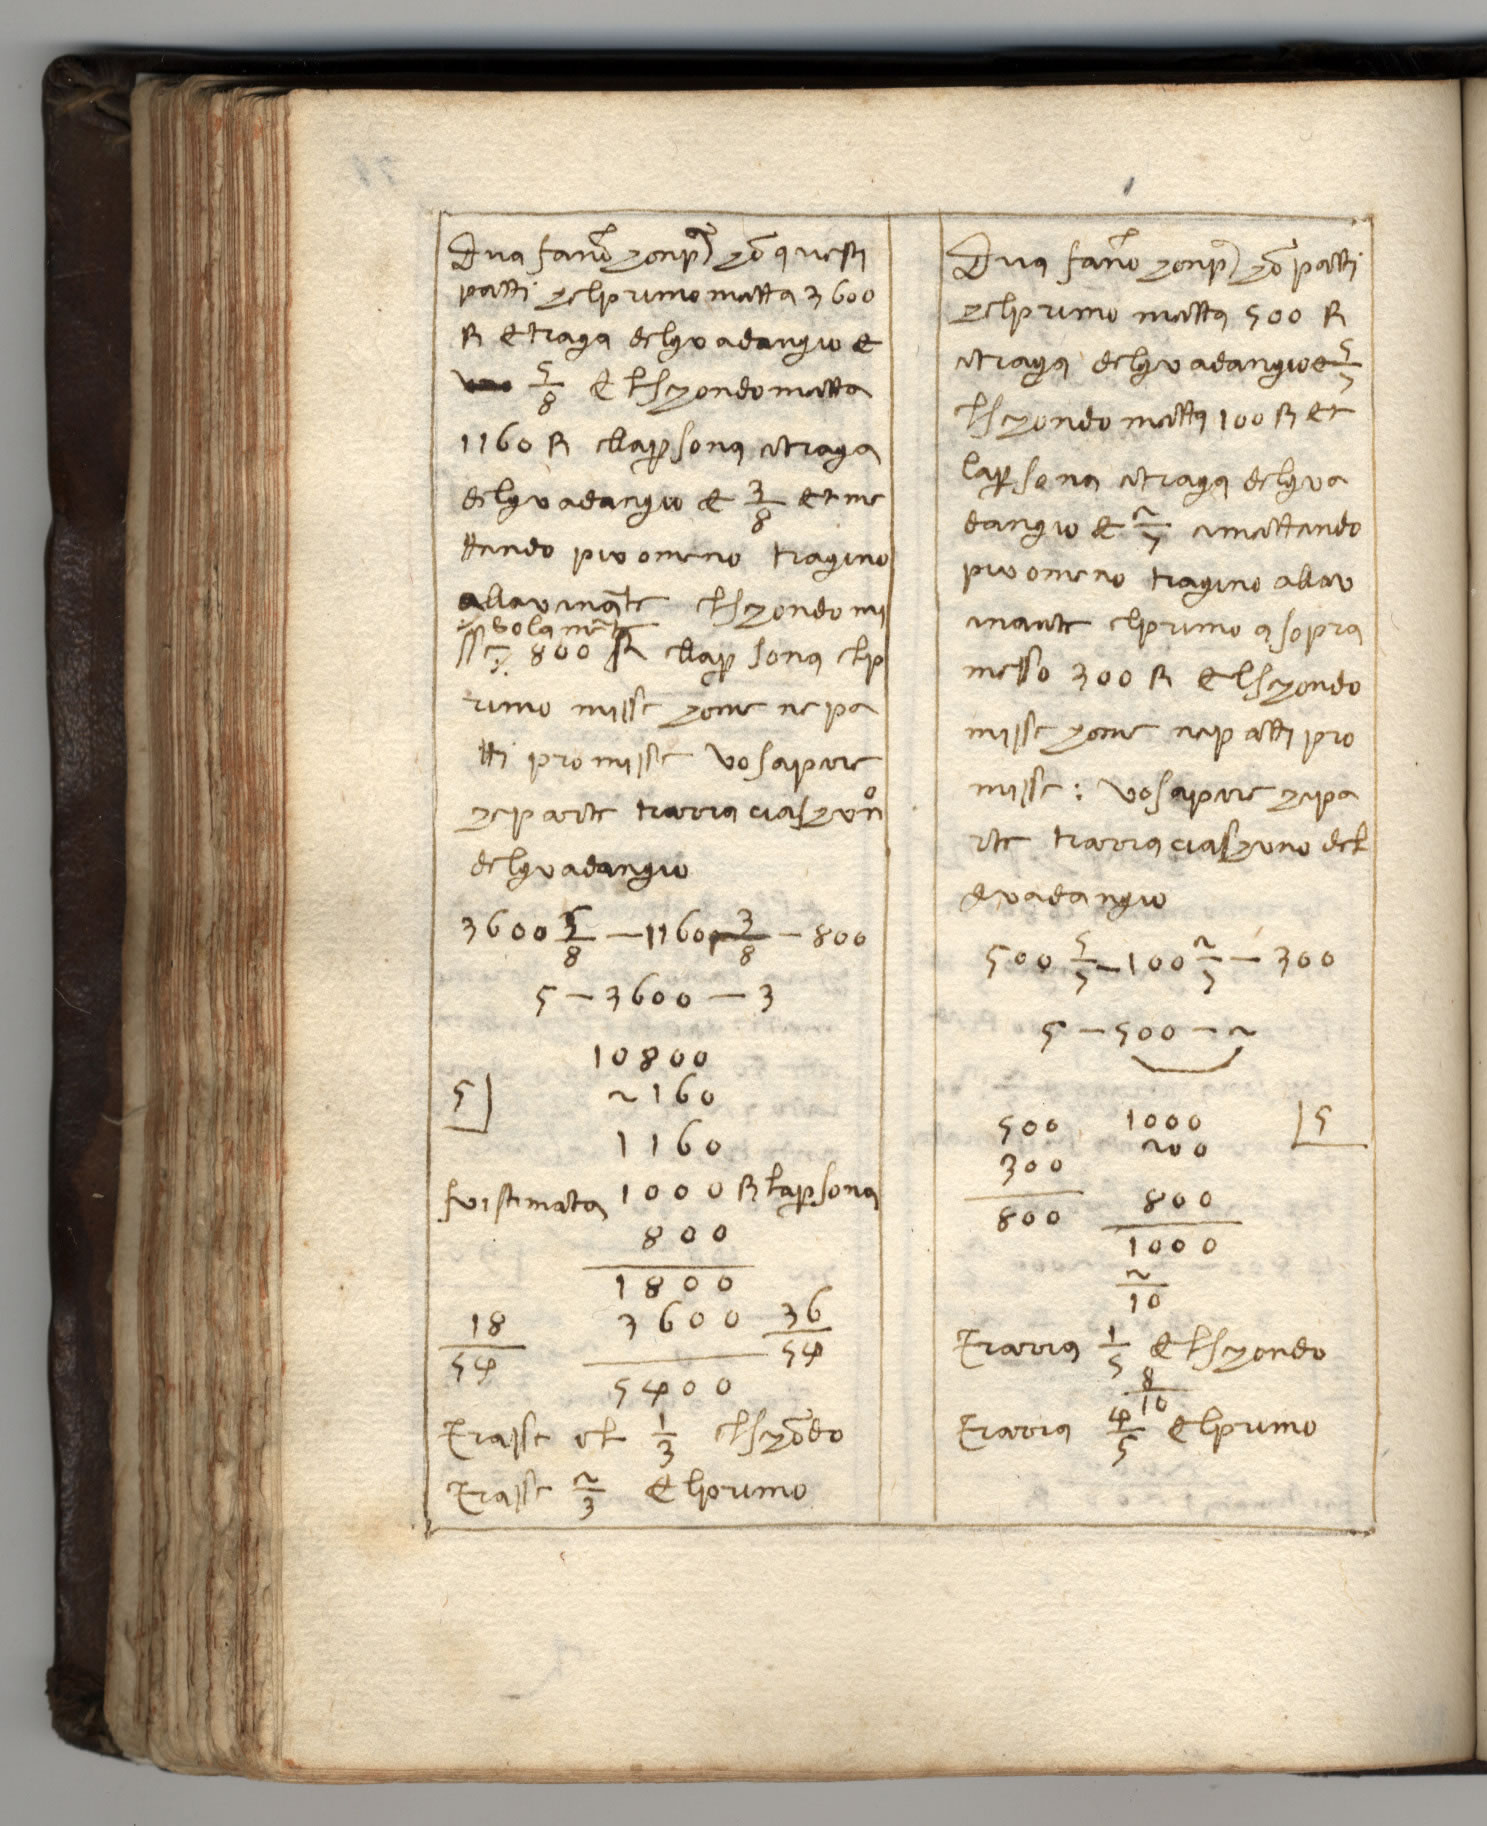 Dua fano conp) cō questi
patti che lprimo metta 3600
R et traga delguadangio e
5/8 e lsecondo metta
1160 R ella p sona etraga
delguadangio e 3/8 et me
ttendo piu omeno tragino
allauināte elsecondo mi
solamēte
sse 800 R ella p sona elp
rimo misse come ne pa
tti promisse vo sapere
che parte trarra ciascunº
delguadangio
3600 5/8 — 1160 3/8 — 800
5 — 3600 — 3
10800
5 2160
1160
fu stimata 1000 R la p sona
800
1800
18/54 3600 36/54
5400
Trasse el 1/3 elsecōdo
Trasse 2/3 e lprimo
Dua fano conp) cō patti
che lprimo metta 500 R
etraga delguadangio e 5/7
elsecondo metta 100 R et
la p sona etraga delgua
dangio e 2/7 emettendo
piu omeno tragino allau
inante elprimo a sopra
messo 300 R e lsecondo
misse come nepatti pro
misse : vo sapere che pa
rte trarra ciascuno del
guadangio
500 5/7 — 100 2/7 — 300
5 — 500 — 2
500 1000 5
300 200
800 800
1000
2/10
Trarra 1/5 e lsecondo
8/10
Trarra 4/5 e lprimo